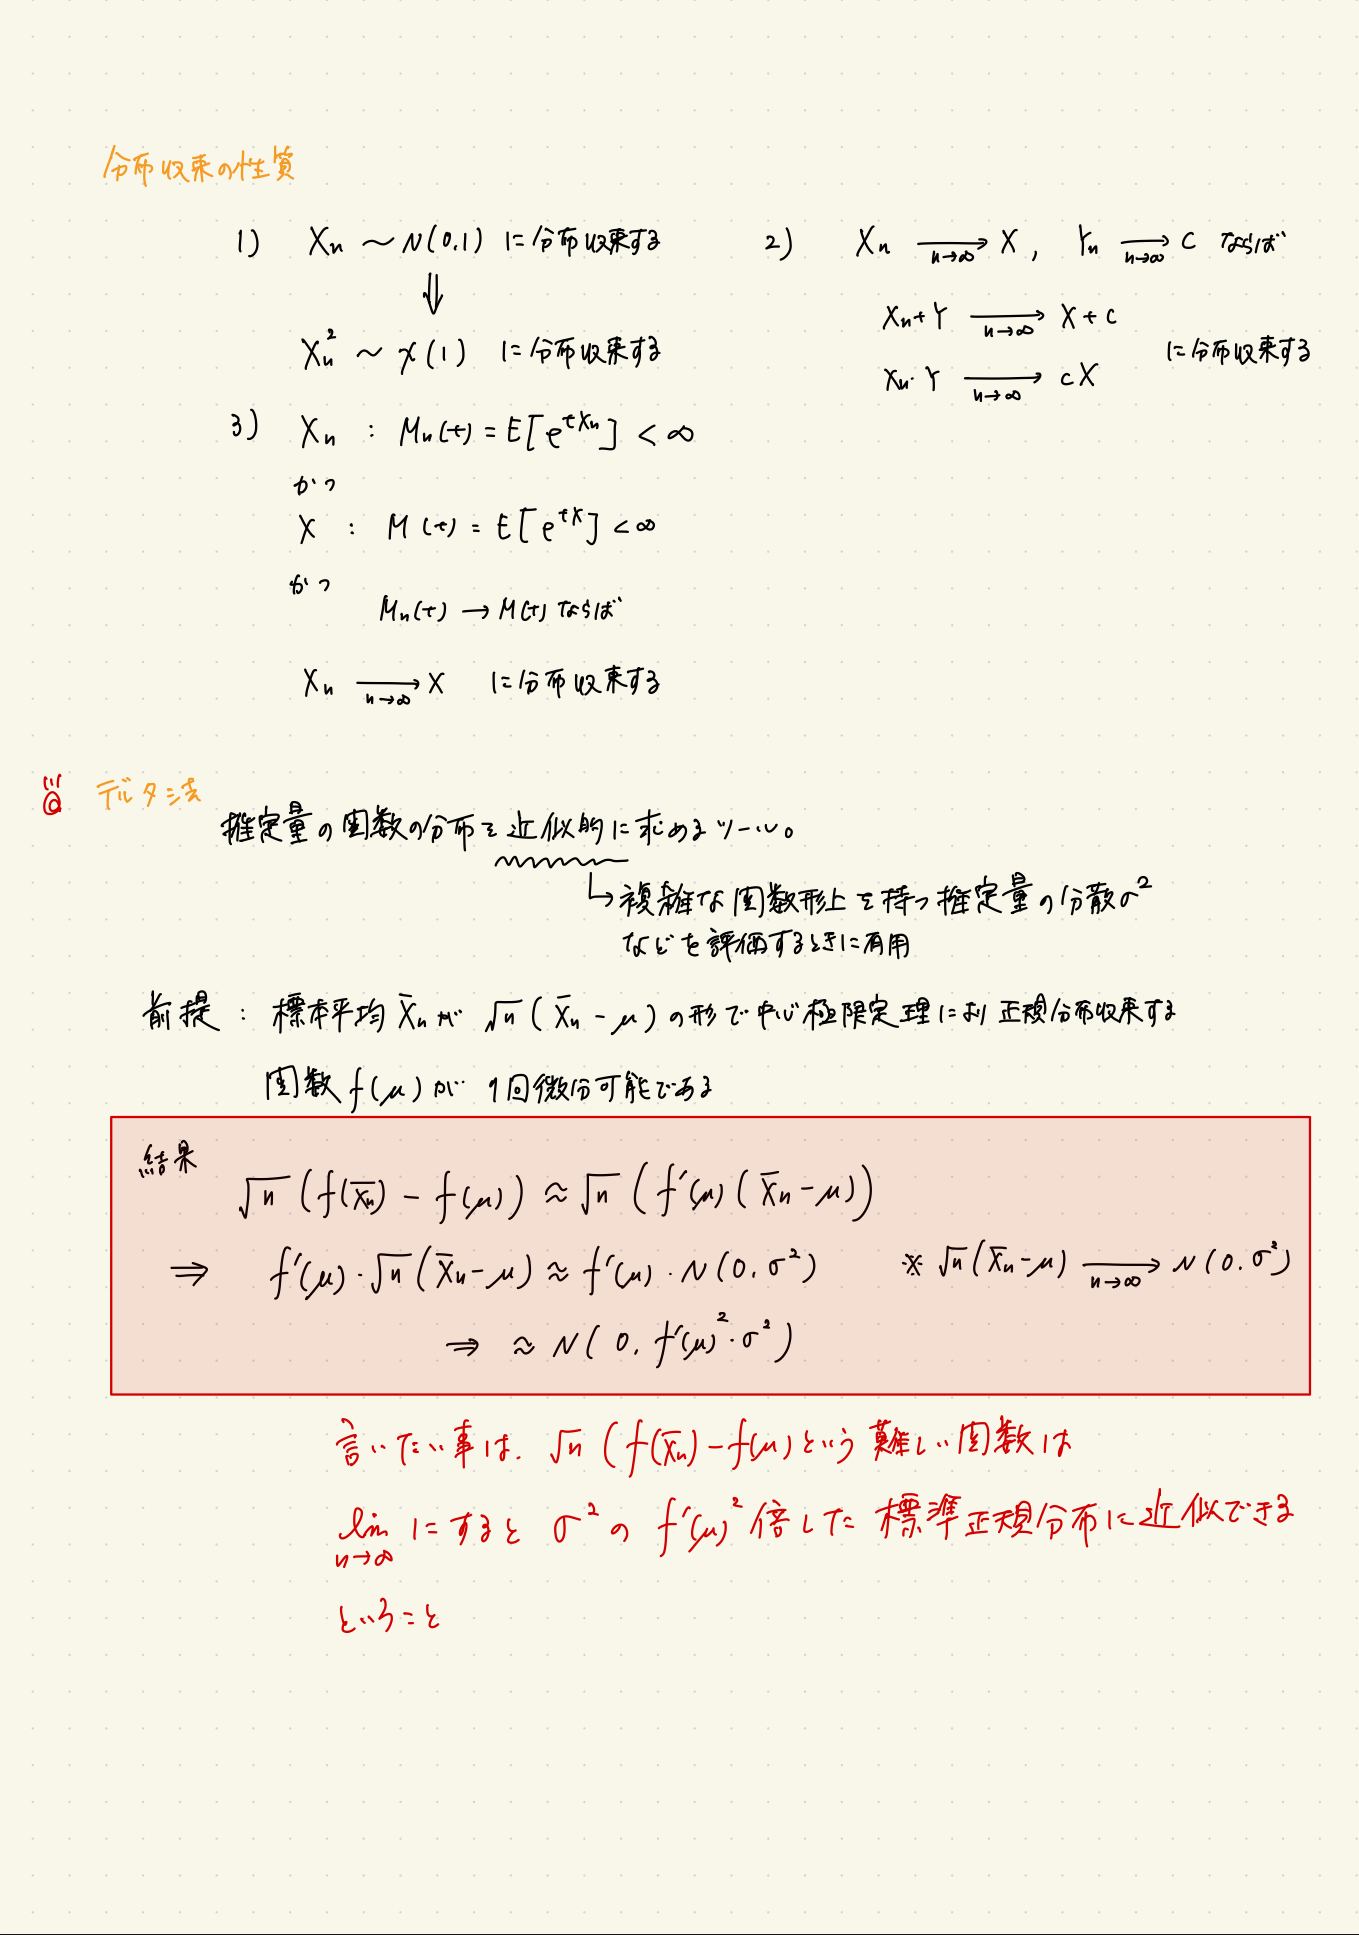 分布収束の性質
1) Xn 〜 N(0,1) に分布収束する
⇓
Xn² 〜 χ(1) に分布収束する
2) Xn →(n→∞) X , Yn →(n→∞) C ならば
Xn+Y →(n→∞) X+c
Xn・Y →(n→∞) cX
に分布収束する
3) Xn : Mn(t) = E[e^{tXn}] < ∞
かつ
X : M(t) = E[e^{tX}] < ∞
かつ
Mn(t) → M(t) ならば
Xn →(n→∞) X に分布収束する
デルタ法
推定量の関数の分布を近似的に求めるツール。
↳ 複雑な関数形上を持つ推定量の分散σ²
などを評価するときに有用
前提 : 標本平均 X̄n が √n(X̄n - μ) の形で中心極限定理により正規分布収束する
関数 f(μ) が 1回微分可能である
結果
√n (f(X̄n) - f(μ)) ≈ √n (f'(μ)(X̄n - μ))
⇒ f'(μ)・√n(X̄n - μ) ≈ f'(μ)・N(0, σ²) ※ √n(X̄n - μ) →(n→∞) N(0, σ²)
⇒ ≈ N(0, f'(μ)²・σ²)
言いたい事は. √n (f(X̄n) - f(μ) という難しい関数は
lim n→∞ にすると σ² の f'(μ)² 倍した標準正規分布に近似できる
ということ